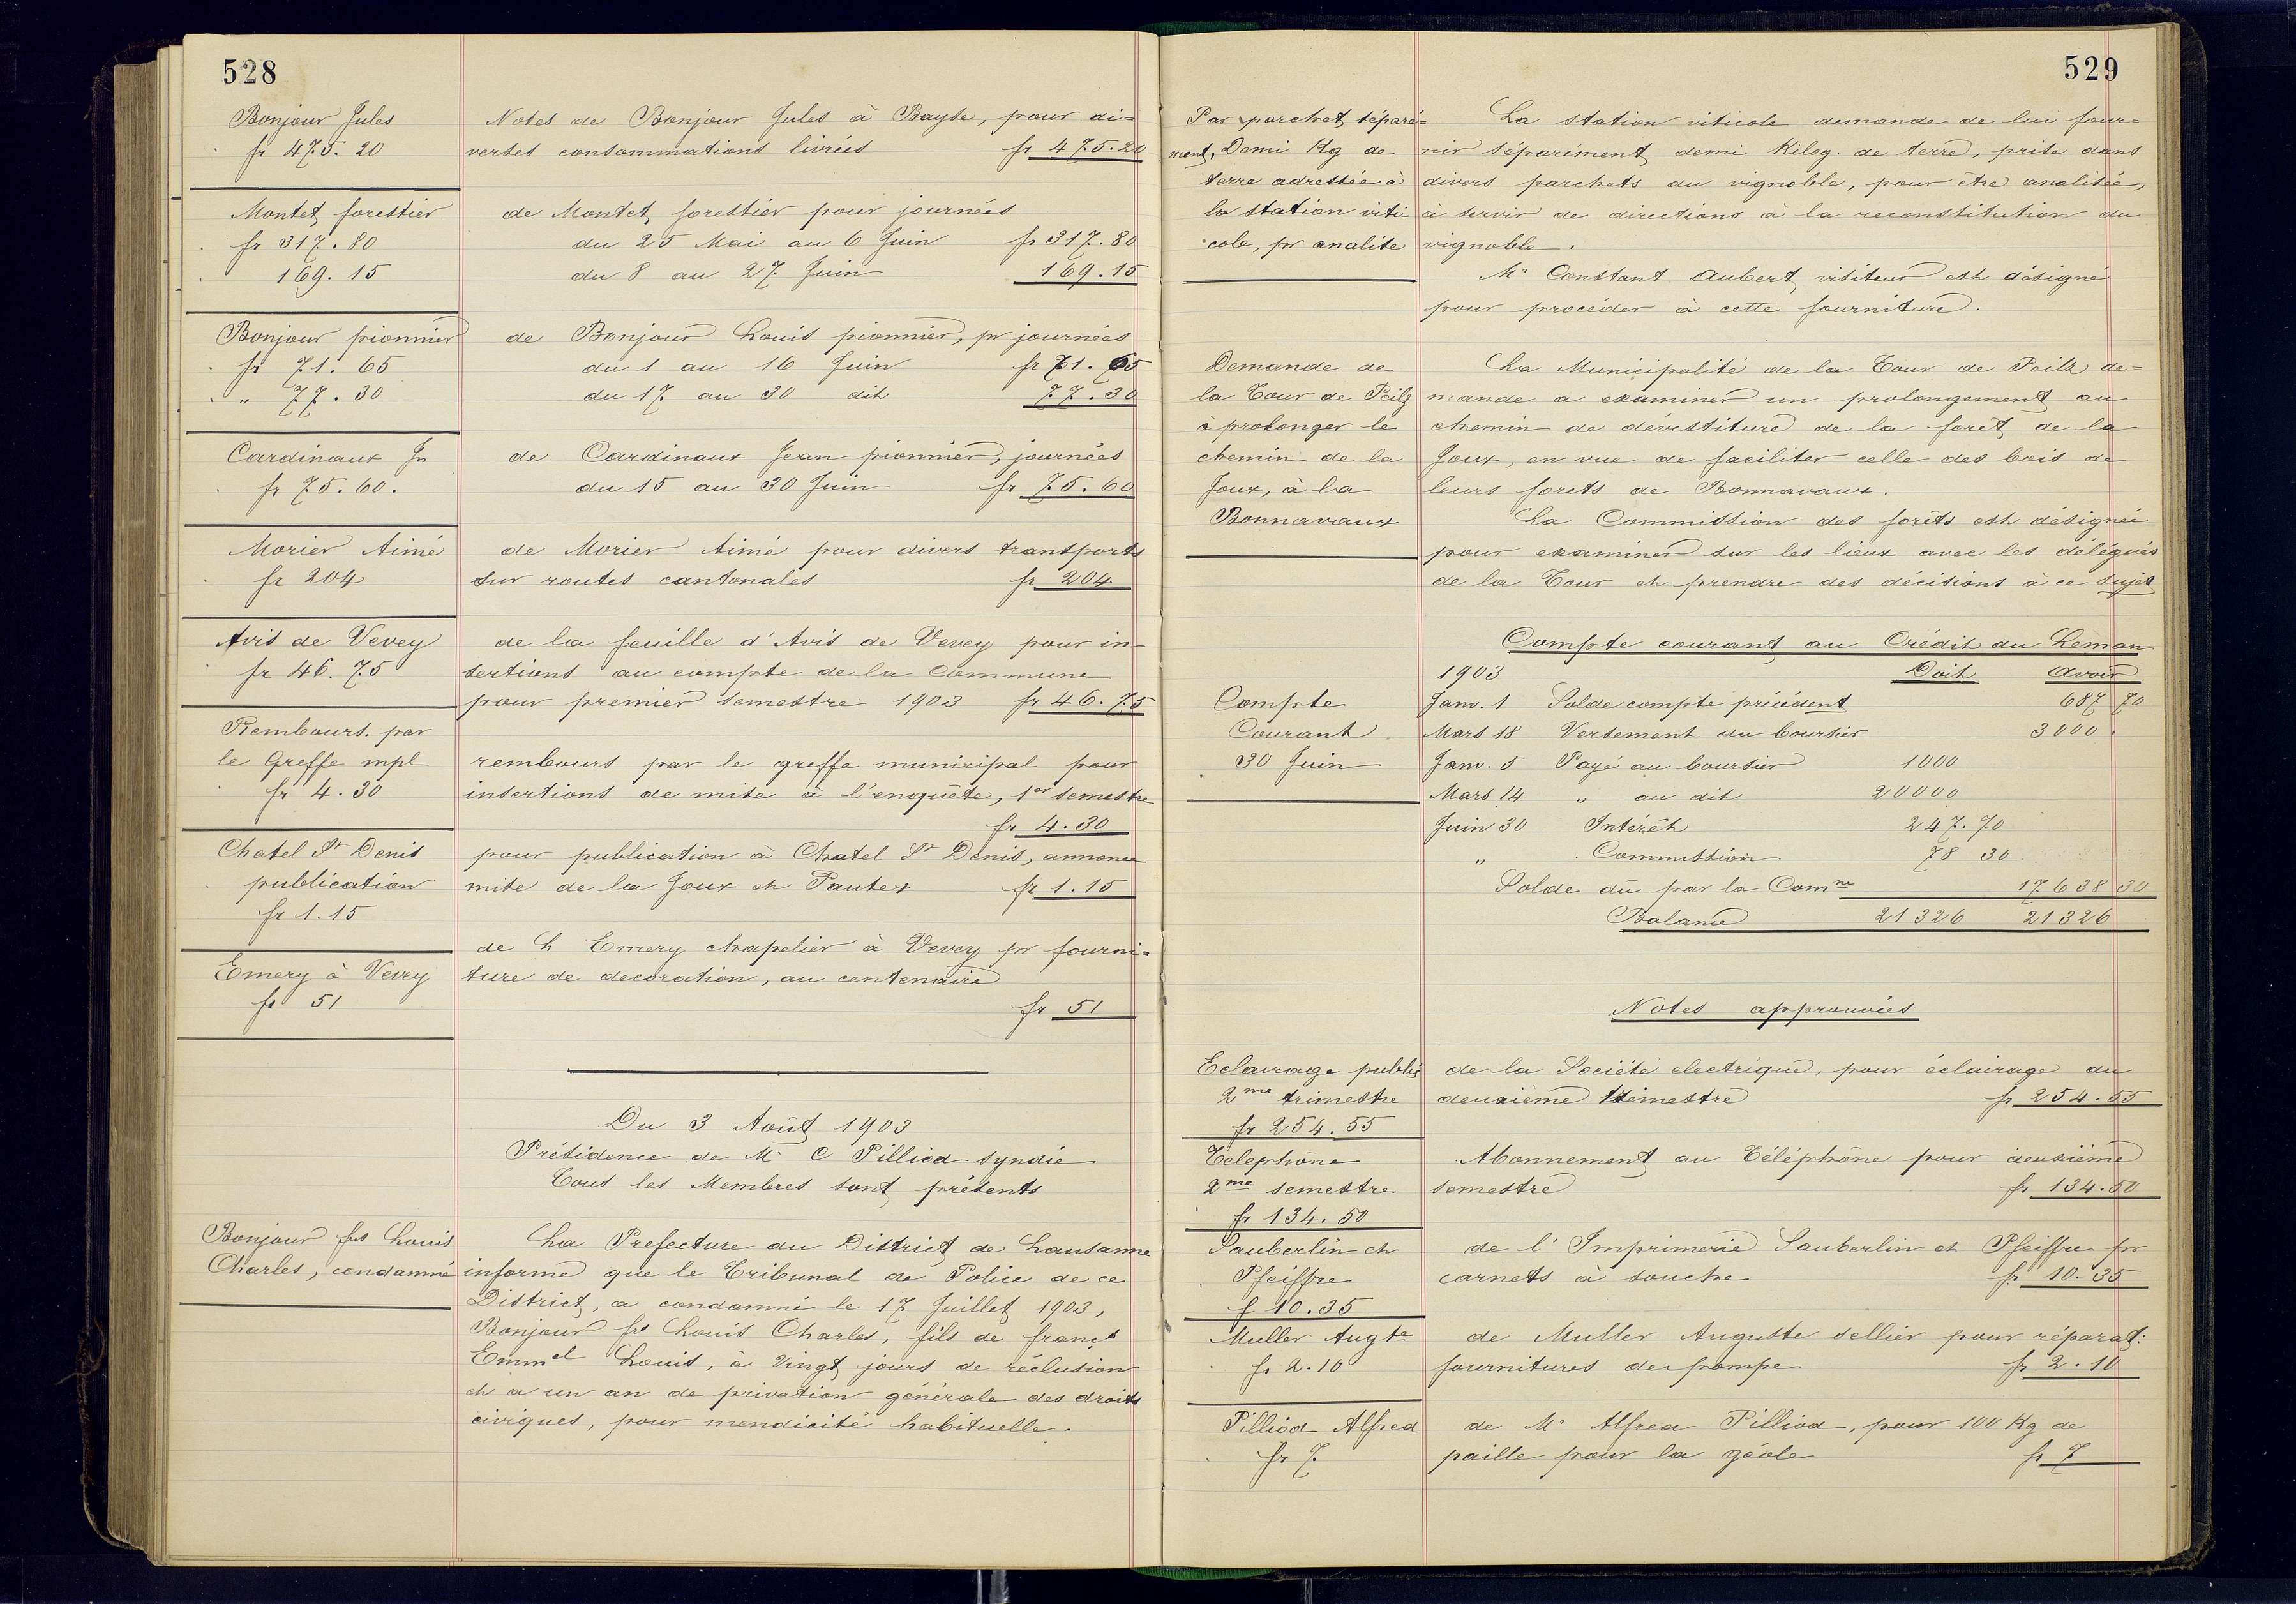 528
Bonjour Jules
fr 475. 20
Notes de Bonjour Jules à Bayse, pour di=
verses consommations livrées fr 475. 20
Montet forestier
fr 317. 80
169. 15
de Montet, forestier pour journées
du 25 Mai au 6 Juin fr 317. 80
du 8 au 27 Juin 169. 15
Bonjour pionnier
fr 71. 65
" 77. 30
de Bonjour Louis pionnier, pr journées
du 1 au 16 Juin fr 71. 65
du 17 au 30 dit 77. 30
Cardinaux Jn
fr 75. 60.
de Cardinaux Jean pionnier, journées
du 15 au 30 Juin fr 75. 60
Morier Aimé
fr 204
de Morier Aimé pour divers transports
sur routes cantonales fr 204
Avis de Vevey
fr 46. 75
de la feuille d'Avis de Vevey pour in-
sertions au compte de la Commune
pour premier semestre 1903 fr 46. 75
Rembours. par
le Greffe mpl
fr 4. 30
rembours par le greffe municipal pour
insertions de mise à l'enquête, 1er semestre
fr 4. 30
Chatel St Denis
publication
fr 1. 15
pour publication à Chatel St Denis, annonce
mise de la Joux et Pautex fr 1. 15
Emery à Vevey
fr 51
de L Emery chapelier à Vevey pr fourni=
ture de decoration, au centenaire
fr 51
Du 3 Août 1903
Présidence de Mr C Pilliod syndic
Tous les Membres sont présents
Bonjour fs Louis
Charles, condamné
La Prefecture du District de Lausanne
informe que le Tribunal de Police de ce
District, a condamné le 17 Juillet 1903,
Bonjour frs Louis Charles, fils de françs
Emmel Louis, à vingt jours de réclusion
et a un an de privation générale des droits
civiques, pour mendicité habituelle.
529
Par parchet séparé=
ment, Demi Kg de
terre adressée à
la station viti
cole, pr analise
La station viticole demande de lui four=
nir séparément, demi Kilog. de terre, prise dans
divers parchets du vignoble, pour être analisée,
à servir de directions à la reconstitution du
vignoble.
Mr Constant Aubert, visiteur est désigné
pour procéder à cette fourniture.
Demande de
la Tour de Peilz
à prolonger le
chemin de la
Joux, à la
Bonnavaux
La Municipalité de la Tour de Peilz de=
mande a examiner un prolongement au
chemin de dévestiture de la forêt de la
Joux, en vue de faciliter celle des bois de
leurs forets de Bonnavaux.
La Commission des forêts est désignée
pour examiner sur les lieux avec les délégués
de la Tour et prendre des décisions à ce sujet
Compte courant au Crédit du Leman
1903 Doit Avoir
Compte
Courant
30 Juin
Janv. 1 Solde compte précédent 687 70
Mars 18 Versement du boursier 3000.
Janv. 5 Payé au boursier 1000
Mars 14 " au dit 20000
Juin 30 Intérêt 247. 70
" Commission 78 30
Solde dû par la Comne 17638 30
Balance 21326 21326
Notes approuvées
Eclairage public
2me trimestre
fr 254. 55
de la Société electrique, pour éclairage du
deuxième trimestre fr 254. 55
Telephône
2me semestre
fr 134. 50
Abonnement au Téléphône pour deuxième
semestre fr 134. 50
Sauberlin et
Pfeiffre
f 10. 35
de l'Imprimerie Sauberlin et Pfeiffre pr
carnets à souche fr 10. 35
Muller Augte
fr 2. 10
de Muller Auguste sellier pour réparat:
fournitures de pompe fr 2. 10
Pilliod Alfred
fr 7.
de Mr Alfred Pilliod, pour 100 Kg de
paille pour la geôle fr 7